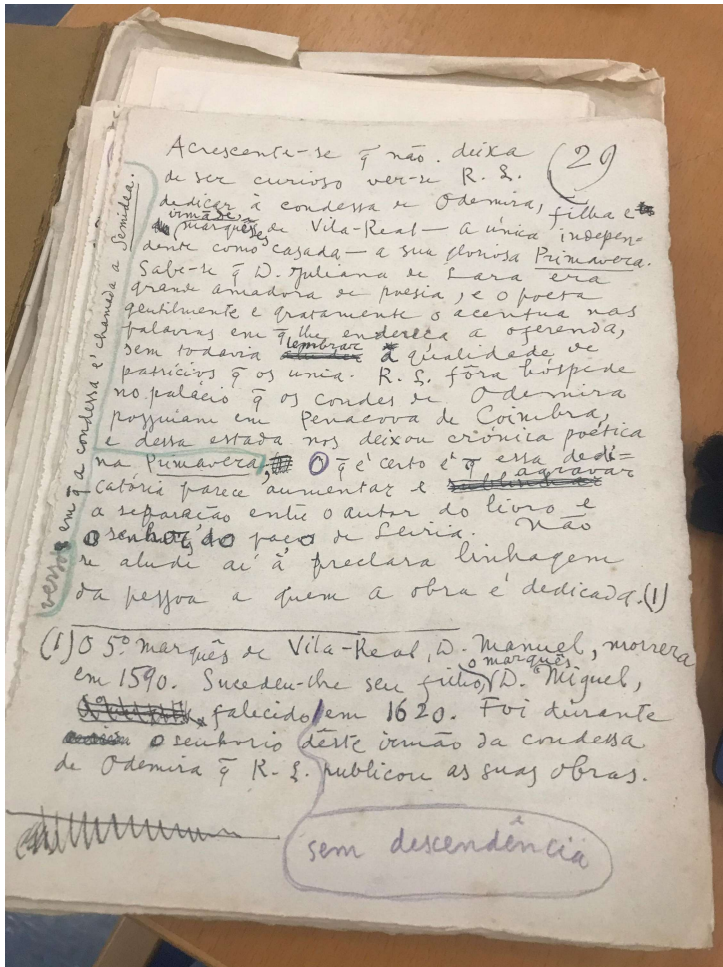 (29)
Acrescente-se q̃ não deixa
de ser curioso ver-se R. L.
dedicar à condessa de Odemira, filha e
irmã de marquêses de Vila-Real — a única indepen-
dente como casada — a sua gloriosa Primavera.
Sabe-se q̃ D. Juliana de Lara era
grande amadora de poesia, e o poeta
gentilmente e gratamente o acentua nas
palavras em q̃ lhe endereça a oferenda,
sem todavia lembrar a qualidade de
patrícios q̃ os unia. R. L. fôra hóspede
no palácio q̃ os condes de Odemira
possuiam em Penacova de Coimbra,
e dessa estada nos deixou crónica poética
na Primavera, O q̃ é certo é q̃ essa dedi=
catória parece aumentar e agravar
a separação entre o autor do livro e
o senhor do paço de Leiria. Não
se alude aí à preclara linhagem
da pessoa a quem a obra é dedicada. (1)
versos em q̃ a condessa é chamada a Semidea.
(1) O 5º marquês de Vila-Real, D. Manuel, morrera
em 1590. Sucedeu-lhe seu filho, o marquês D. Miguel,
falecido em 1620. Foi durante
o senhorio dêste irmão da condessa
de Odemira q̃ R. L. publicou as suas obras.
sem descendência